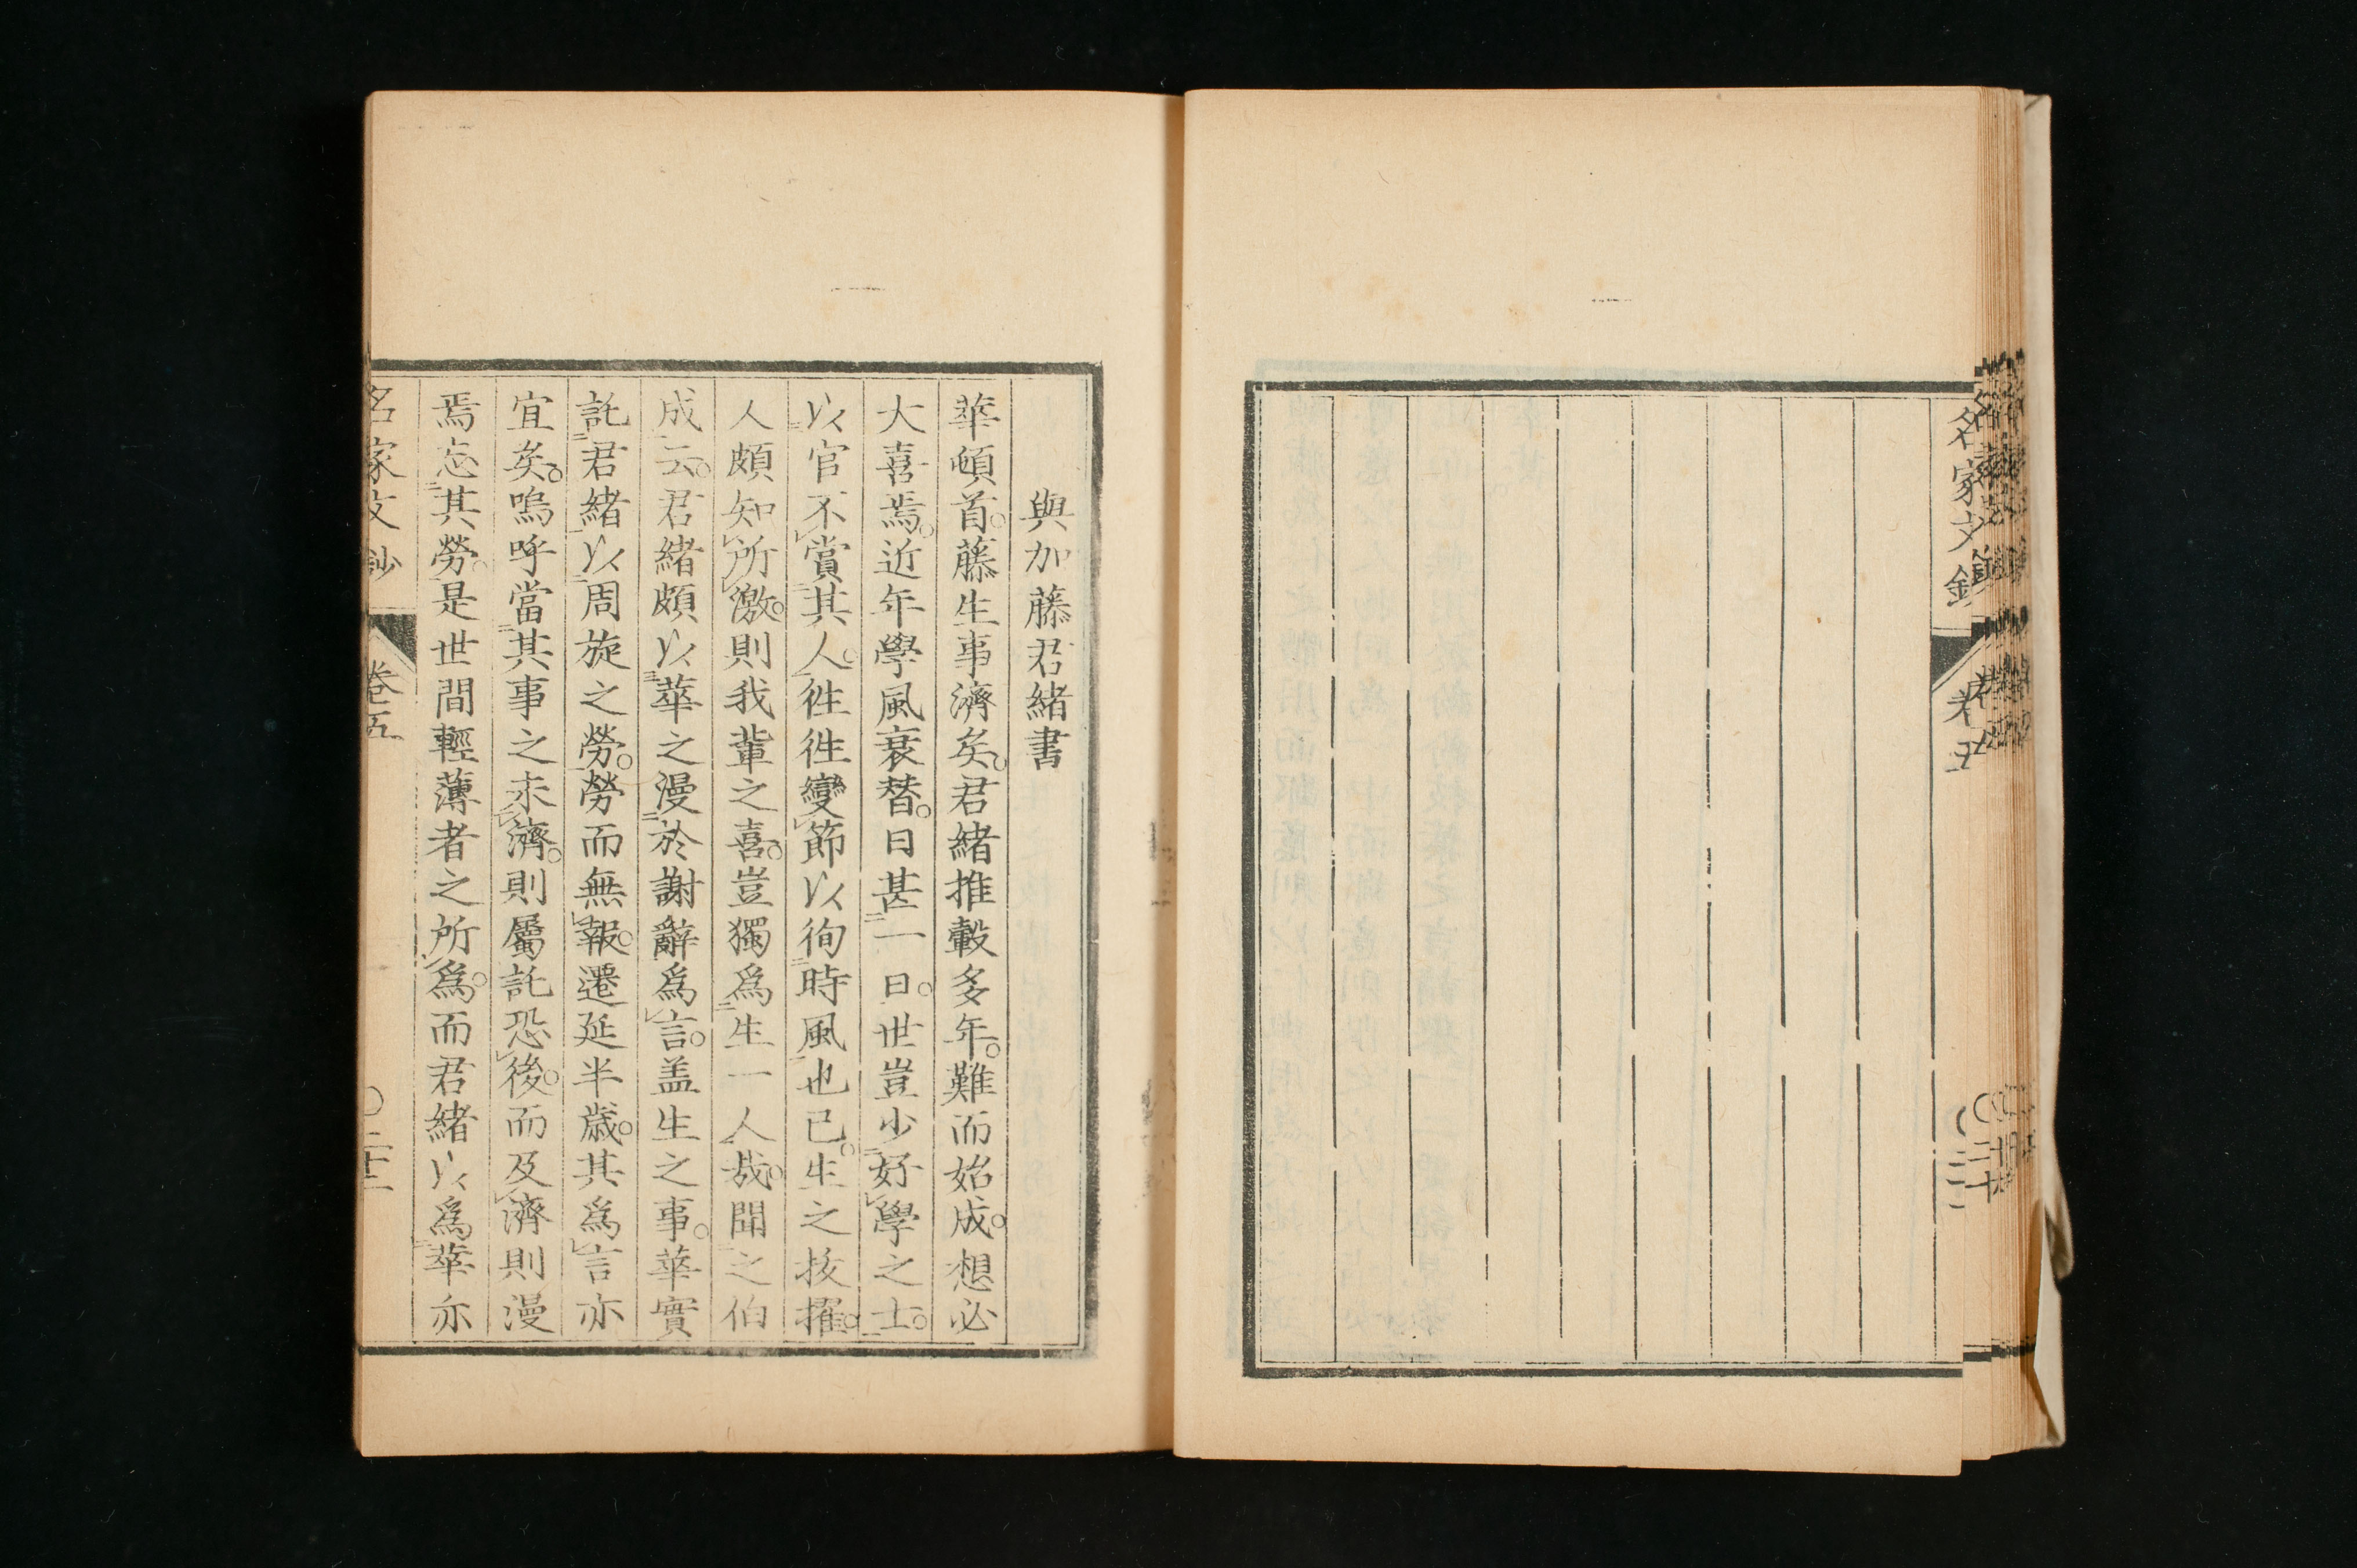 名家文鈔
卷五
與加藤君緒書
華頓首。藤生事濟矣。君緒推轂多年。難而始成。想必
大喜焉。近年學風衰替。日甚一日。世豈少好學之士。
以官不賞其人。徃徃變節以徇時風也已。生之拔擢。
人頗知所激。則我輩之喜。豈獨爲生一人哉。聞之伯
成云。君緒頗以華之漫於謝辭爲言。盖生之事。華實
託君緒以周旋之勞。勞而無報。遷延半歳。其爲言亦
宜矣。嗚呼當其事之未濟。則屬託恐後。而及濟則漫
焉忘其勞。是世間輕薄者之所爲。而君緒以爲華亦
名家文鈔
卷五
〇二十二